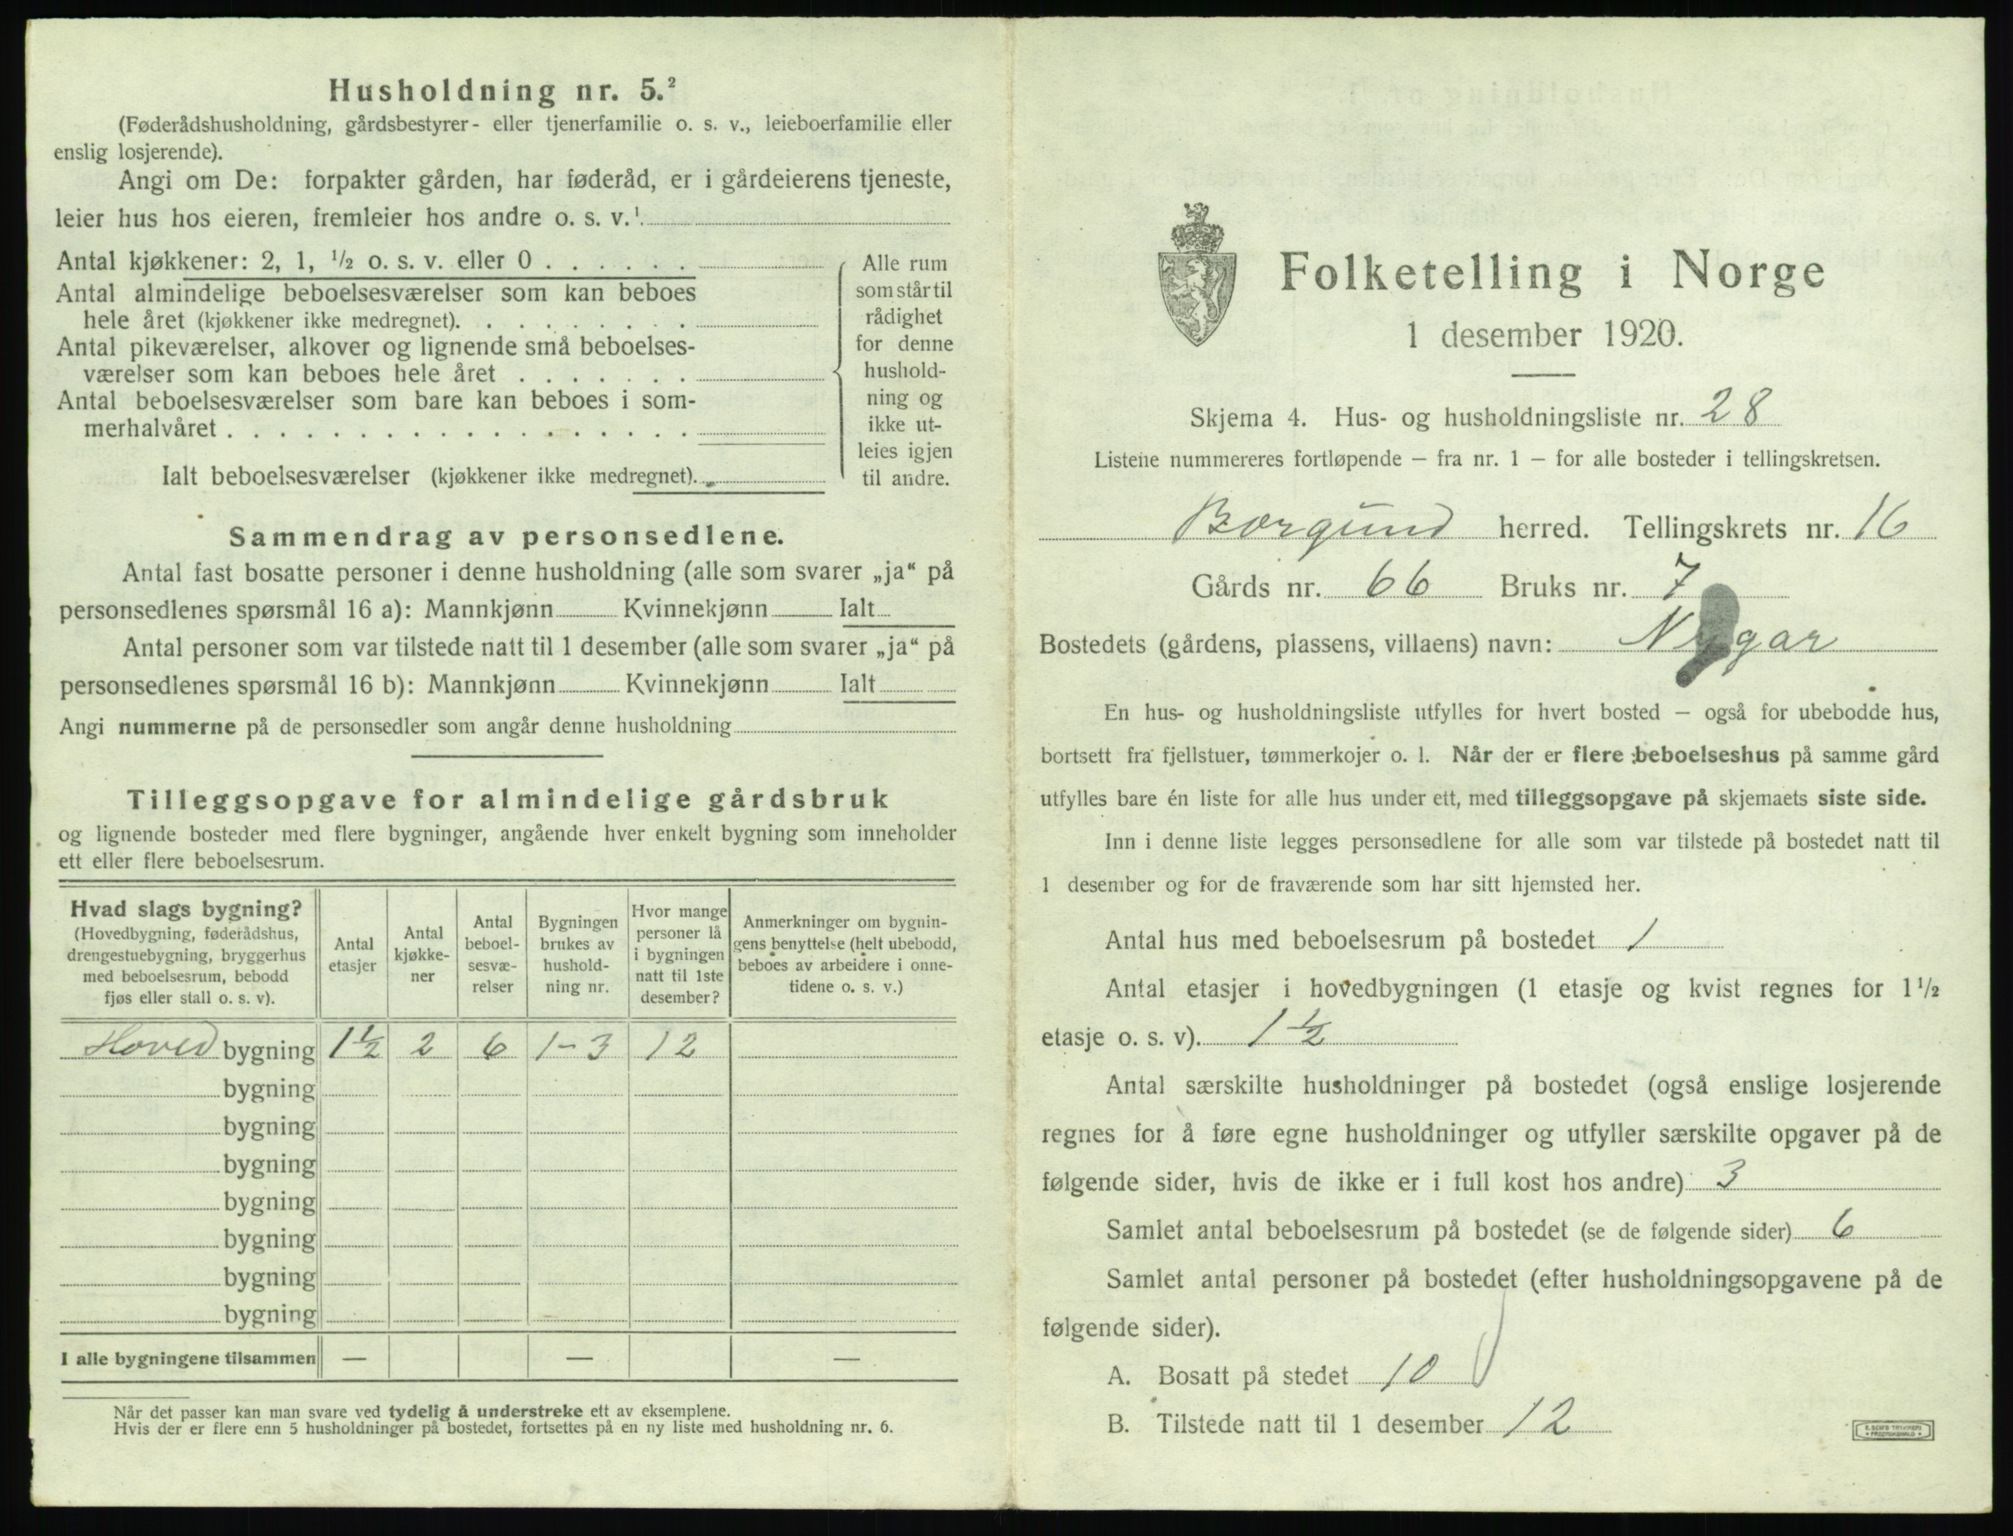 Husholdning nr. 5.²
(Føderådshusholdning, gårdsbestyrer- eller tjenerfamilie o. s. v., leieboerfamilie eller
enslig losjerende).
Angi om De: forpakter gården, har føderåd, er i gårdeierens tjeneste,
leier hus hos eieren, fremleier hos andre o. s. v.¹
Antal kjøkkener: 2, 1, ½ o. s. v. eller 0 . . . . . .
Antal almindelige beboelsesværelser som kan beboes
hele året (kjøkkener ikke medregnet). . . . . . . . .
Antal pikeværelser, alkover og lignende små beboelses-
værelser som kan beboes hele året . . . . . . .
Antal beboelsesværelser som bare kan beboes i som-
merhalvåret . . . . . . . . . . . . . . . . . .
Ialt beboelsesværelser (kjøkkener ikke medregnet).
Alle rum
som står til
rådighet
for denne
hushold-
ning og
ikke ut-
leies igjen
til andre.
Sammendrag av personsedlene.
Antal fast bosatte personer i denne husholdning (alle som svarer „ja“ på
personsedlenes spørsmål 16 a): Mannkjønn Kvinnekjønn Ialt
Antal personer som var tilstede natt til 1 desember (alle som svarer „ja“ på
personsedlenes spørsmål 16 b): Mannkjønn Kvinnekjønn Ialt
Angi nummerne på de personsedler som angår denne husholdning
Tilleggsopgave for almindelige gårdsbruk
og lignende bosteder med flere bygninger, angående hver enkelt bygning som inneholder
ett eller flere beboelsesrum.
Hvad slags bygning?
(Hovedbygning, føderådshus,
drengestuebygning, bryggerhus
med beboelsesrum, bebodd
fjøs eller stall o. s. v).
Antal
etasjer
Antal
kjøkke-
ner
Antal
beboel-
sesvæ-
relser
Bygningen
brukes av
hushold-
ning nr.
Hvor mange
personer lå
i bygningen
natt til 1ste
desember?
Anmerkninger om bygnin-
gens benyttelse (helt ubebodd,
beboes av arbeidere i onne-
tidene o. s. v.)
Hoved bygning 1½ 2 6 1-3 12
bygning
bygning
bygning
bygning
bygning
bygning
bygning
I alle bygningene tilsammen — — —
Når det passer kan man svare ved tydelig å understreke ett av eksemplene.
Hvis der er flere enn 5 husholdninger på bostedet, fortsettes på en ny liste med husholdning nr. 6.
Folketelling i Norge
1 desember 1920.
Skjema 4. Hus- og husholdningsliste nr. 28
Listene nummereres fortløpende — fra nr. 1 — for alle bosteder i tellingskretsen.
Borgund herred. Tellingskrets nr. 16
Gårds nr. 66 Bruks nr. 7
Bostedets (gårdens, plassens, villaens) navn: Nygar
En hus- og husholdningsliste utfylles for hvert bosted — også for ubebodde hus,
bortsett fra fjellstuer, tømmerkojer o. l. Når der er flere beboelseshus på samme gård
utfylles bare én liste for alle hus under ett, med tilleggsopgave på skjemaets siste side.
Inn i denne liste legges personsedlene for alle som var tilstede på bostedet natt til
1 desember og for de fraværende som har sitt hjemsted her.
Antal hus med beboelsesrum på bostedet 1
Antal etasjer i hovedbygningen (1 etasje og kvist regnes for 1½
etasje o. s. v). 1½
Antal særskilte husholdninger på bostedet (også enslige losjerende
regnes for å føre egne husholdninger og utfyller særskilte opgaver på de
følgende sider, hvis de ikke er i full kost hos andre) 3
Samlet antal beboelsesrum på bostedet (se de følgende sider) 6
Samlet antal personer på bostedet (efter husholdningsopgavene på de
følgende sider).
A. Bosatt på stedet 10
B. Tilstede natt til 1 desember 12